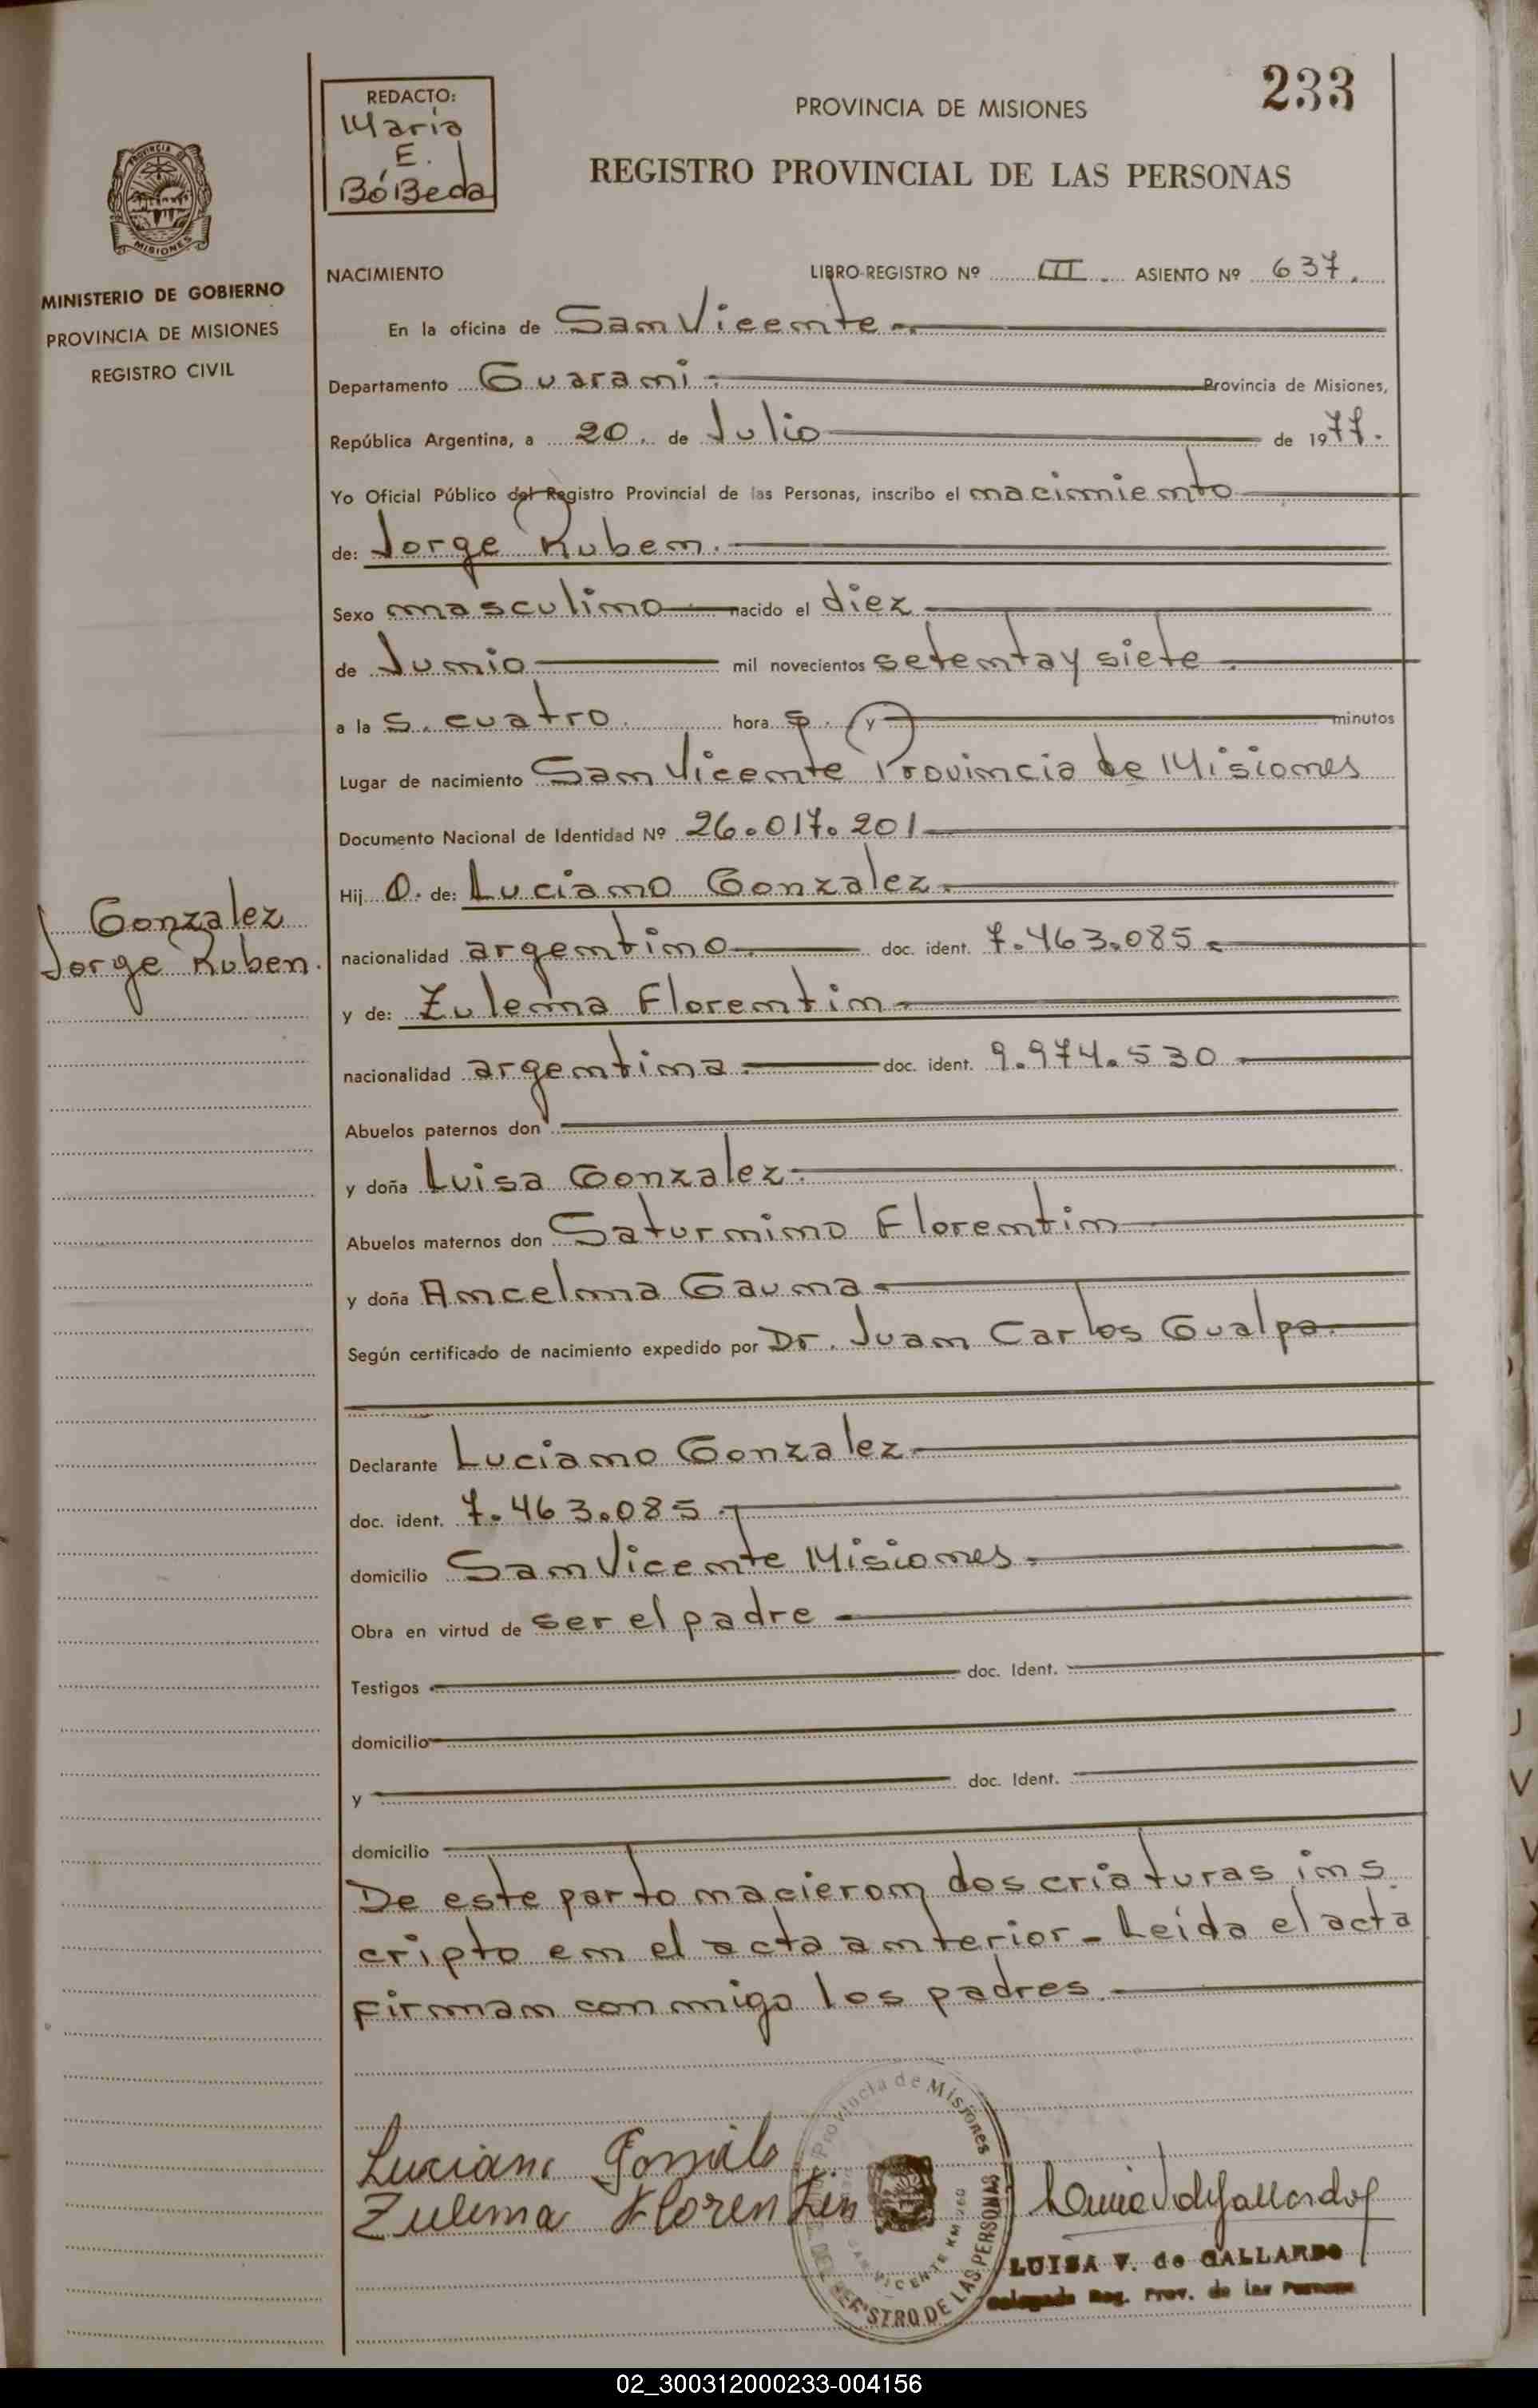 233
REDACTO:
Maria
E.
BóBeda
PROVINCIA DE MISIONES
REGISTRO PROVINCIAL DE LAS PERSONAS
PROVINCIA
MISIONES
MINISTERIO DE GOBIERNO
PROVINCIA DE MISIONES
REGISTRO CIVIL
NACIMIENTO LIBRO-REGISTRO Nº III. ASIENTO Nº 637.
En la oficina de San Vicente
Departamento Guarani Provincia de Misiones,
República Argentina, a 20. de Julio de 1977.
Yo Oficial Público del Registro Provincial de las Personas, inscribo el nacimiento
de: Jorge Ruben.
Sexo masculino nacido el diez
de Junio mil novecientos setenta y siete
a la s. cuatro. hora s. y minutos
Lugar de nacimiento San Vicente Provincia de Misiones
Documento Nacional de Identidad Nº 26.017.201
Hij o. de: Luciano Gonzalez
nacionalidad argentino doc. ident. 7.463.085
y de: Zulema Florentin
nacionalidad argentina doc. ident. 9.974.530
Abuelos paternos don
y doña Luisa Gonzalez
Abuelos maternos don Saturnino Florentin
y doña Ancelma Gauna
Según certificado de nacimiento expedido por Dr. Juan Carlos Gualpa.
Gonzalez
Jorge Ruben.
Declarante Luciano Gonzalez
doc. ident. 7.463.085
domicilio San Vicente Misiones
Obra en virtud de ser el padre
Testigos doc. Ident.
domicilio
y doc. Ident.
domicilio
De este parto nacieron dos criaturas ins
cripto en el acta anterior - Leída el acta
firman conmigo los padres
Zulema Florentin
Provincia de Misiones
REGISTRO DE LAS PERSONAS
SAN VICENTE KM 260
LUISA V. de GALLARDO
Delegada Reg. Prov. de las Personas
02_300312000233-004156